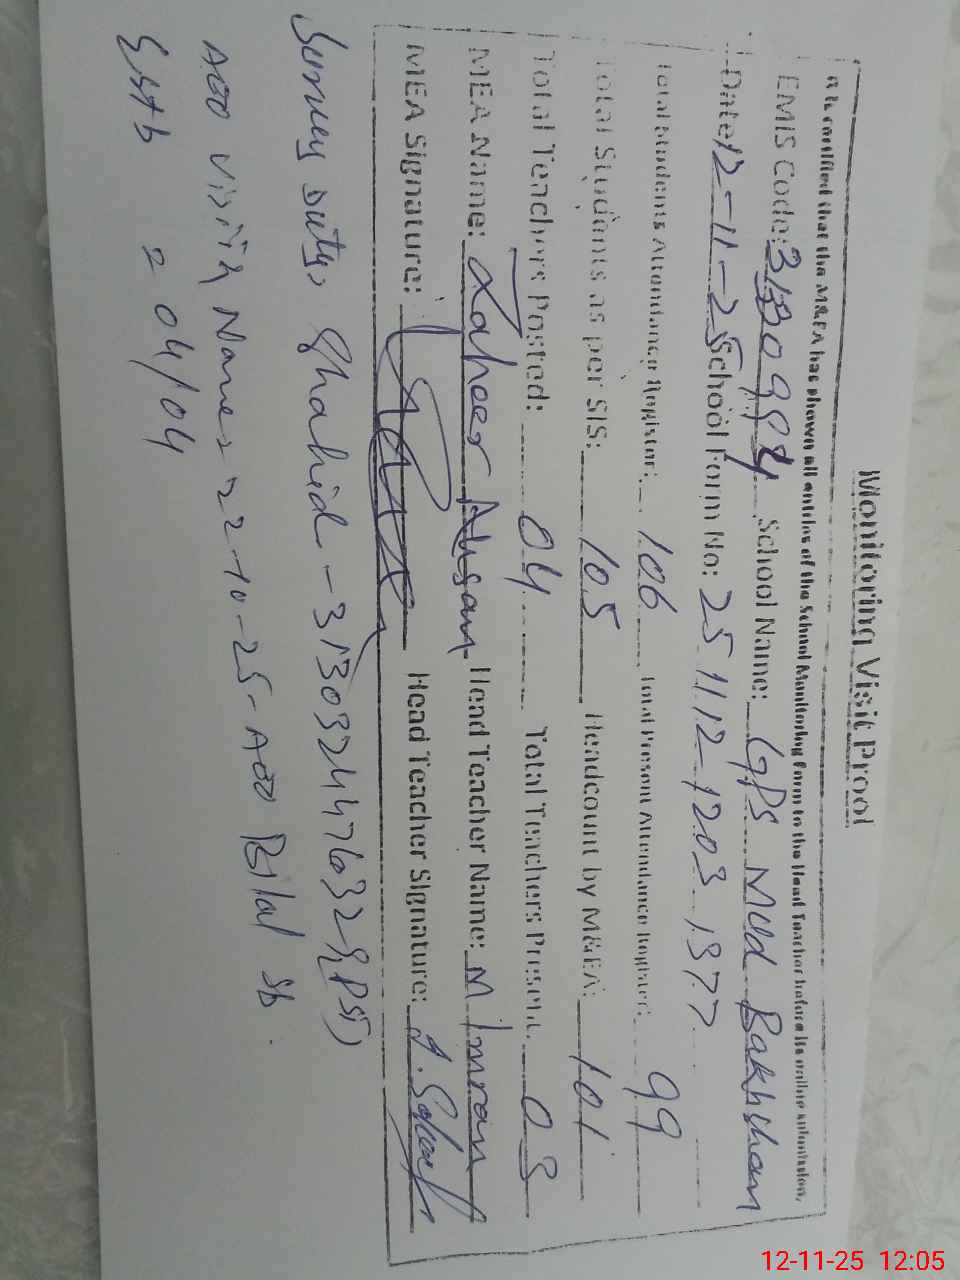 Monitoring Visit Proof
It is certified that the M&EA has shown all entries of the School Monitoring Form to the Head Teacher before its online submission.
EMIS Code: School Name: GPS Mud Bakhsham
Date: 12-11-25 School Form No: 251112-1203 1377
Total Students Attendance Register: 106 Total Present Attendance Register: 99
Total Students as per SIS: 105 Headcount by M&EA: 101
Total Teachers Posted: 04 Total Teachers Present: 03
MEA Name: Zaheer Ahsan Head Teacher Name: M Imran
MEA Signature: Head Teacher Signature:
Survey Duty, Shahid - 3130324476329(PSI)
AEO Visit Name = 22-10-25- AEO Bilal Sb
Estb = 04/04
12-11-25 12:05